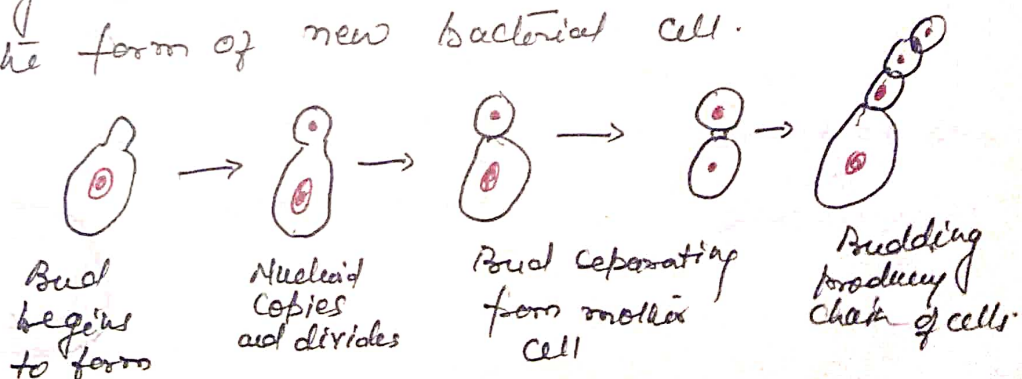 he form of new bacterial cell.
Bud
begins
to form
Nucleoid
copies
and divides
Bud ceparating
from mother
cell
Budding
produces
chain of cells.